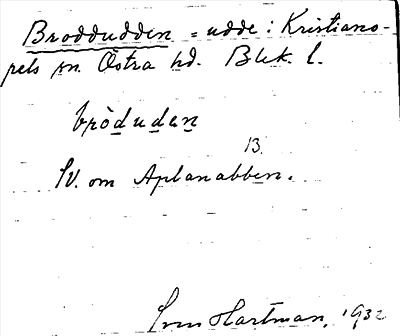 Broddudden = udde i Kristiano-
pels sn. Östra hd. Blek. l.
bròduden
13.
SV. om Aplanabben.
Hartman, 1932